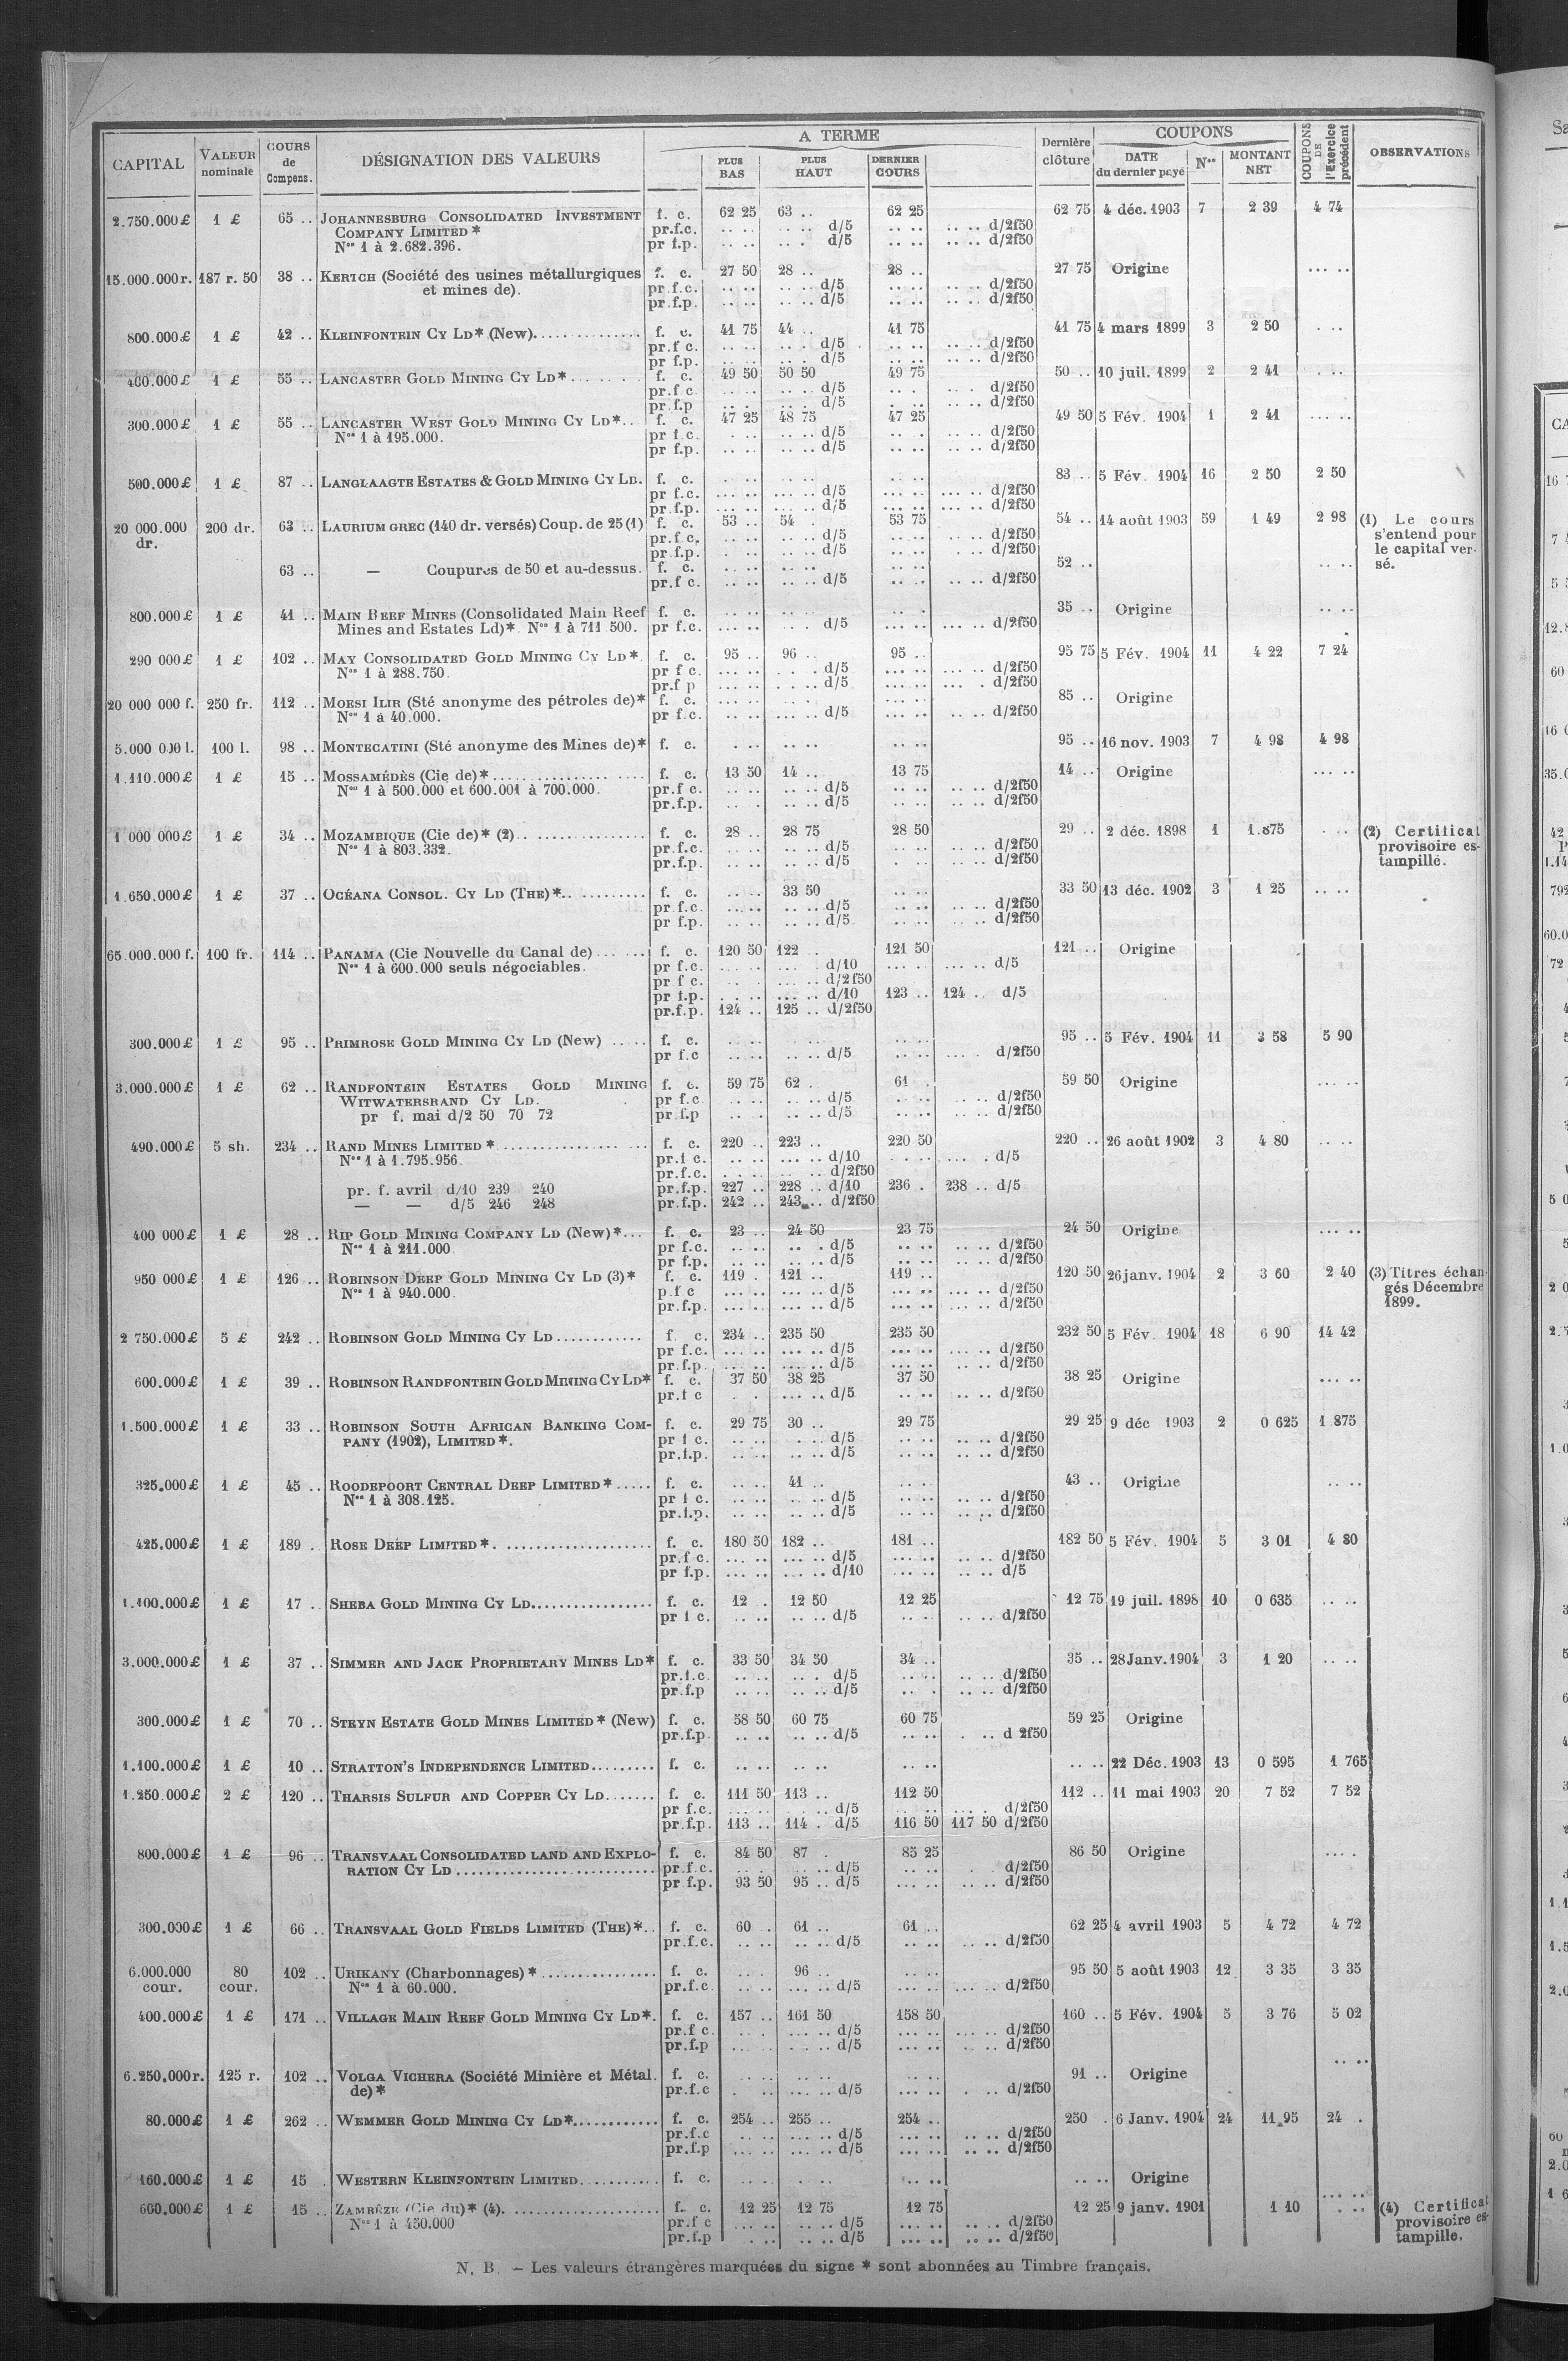 CAPITAL | VALEUR nominale | COURS de Compens. | DÉSIGNATION DES VALEURS | A TERME | PLUS BAS | PLUS HAUT | DERNIER COURS | Dernière clôture | COUPONS | DATE du dernier payé | Nos | MONTANT NET | COUPONS DE l'Exercice précédent | OBSERVATIONS
2.750.000 £ 1 £ 65 .. JOHANNESBURG CONSOLIDATED INVESTMENT f. c. 62 25 63 .. 62 25 62 75 4 déc. 1903 7 2 39 4 74
COMPANY LIMITED * pr.f.c. .. .. .. .. d/5 .. .. .. .. d/2f50
Nos 1 à 2.682.396. pr f.p. .. .. .. . d/5 .. .. .. .. d/2f50
15.000.000 r. 187 r. 50 38 .. KERTCH (Société des usines métallurgiques f. c. 27 50 28 .. 28 .. 27 75 Origine ... ..
et mines de). pr.f.c. .. .. .. .. d/5 .. .. .. .. d/2f50
pr.f.p. .. .. .. .. d/5 .. .. .. .. d/2f50
800.000 £ 1 £ 42 .. KLEINFONTEIN CY LD * (New). f. c. 41 75 44 .. 41 75 41 75 4 mars 1899 3 2 50 . ..
pr.f c. .. .. .. .. d/5 .. .. .. .. d/2f50
pr f.p. .. .. .. .. d/5 .. .. .. .. d/2f50
400.000 £ 1 £ 55 .. LANCASTER GOLD MINING CY LD * f. c. 49 50 50 50 49 75 50 .. 10 juil. 1899 2 2 41 . ..
pr.f c. .. .. .. .. d/5 .. .. .. .. d/2f50
pr.f.p .. .. .. .. d/5 .. .. .. .. d/2f50
300.000 £ 1 £ 55 .. LANCASTER WEST GOLD MINING CY LD * .. f. c. 47 25 48 75 47 25 49 50 5 Fév. 1904 1 2 41 ... ..
Nos 1 à 195.000. pr f.c. . .. .. .. d/5 .. . .. .. d/2f50
pr f.p. .. .. .. .. d/5 .. .. .. .. d/2f50
500.000 £ 1 £ 87 .. LANGLAAGTE ESTATES & GOLD MINING CY LD. f. c. . .. .. .. .. .. 83 .. 5 Fév. 1904 16 2 50 2 50
pr f.c. ... .. ... .. d/5 ... .. ... .. d/2f50
pr.f.p. ... .. ... .. d/5 ... .. ... .. d/2f50
20 000.000 dr. 200 dr. 63 .. LAURIUM GREC (140 dr. versés) Coup. de 25 (1) f. c. 53 .. 54 . 53 75 54 .. 14 août 1903 59 1 49 2 98 (1) Le cours s'entend pour le capital versé.
pr.f c. .. .. .. .. d/5 .. .. .. .. d/2f50
pr.f.p. . .. .. .. d/5 .. .. .. .. d/2f50
63 .. — Coupures de 50 et au-dessus. f. c. .. .. .. .. .. .. 52 .. .. ..
pr.f c. .. .. .. .. d/5 .. .. .. .. d/2f50
800.000 £ 1 £ 41 .. MAIN REEF MINES (Consolidated Main Reef f. c. .. .. .. .. .. . 35 .. Origine .. ..
Mines and Estates Ld) *. Nos 1 à 711.500. pr f.c. ... .. .. . d/5 ... .. ... .. d/2f50
290 000 £ 1 £ 102 .. MAY CONSOLIDATED GOLD MINING CY LD *. f. c. 95 .. 96 .. 95 .. 95 75 5 Fév. 1904 11 4 22 7 24
Nos 1 à 288.750. pr f c. ... .. . . .. d/5 ... .. ... .. d/2f50
pr.f p ... .. . . .. d/5 ... .. ... . d/2f50
20 000 000 f. 250 fr. 112 .. MORSI ILIR (Sté anonyme des pétroles de) * f. c. .. .. .. .. .. .. 85 .. Origine
Nos 1 à 40.000. pr f.c. .. .. ... .. d/5 ... .. .. .. d/2f50
5.000 000 l. 100 l. 98 .. MONTECATINI (Sté anonyme des Mines de) * f. c. . .. .. .. .. .. 95 .. 16 nov. 1903 7 4 98 4 98
1.110.000 £ 1 £ 15 .. MOSSAMÉDÈS (Cie de) * f. c. 13 50 14 .. 13 75 14 .. Origine ... ..
Nos 1 à 500.000 et 600.001 à 700.000. pr.f c. .. .. .. .. d/5 .. .. .. .. d/2f50
pr.f.p. .. .. .. .. d/5 .. .. .. .. d/2f50
1 000 000 £ 1 £ 34 .. MOZAMBIQUE (Cie de) * (2) f. c. 28 .. 28 75 28 50 29 .. 2 déc. 1898 1 1.875 . .. (2) Certificat provisoire estampillé.
Nos 1 à 803.332. pr.f.c. .. .. .. .. d/5 .. .. .. .. d/2f50
pr.f.p. .. .. .. .. d/5 . .. .. .. d/2f50
1.650.000 £ 1 £ 37 .. OCÉANA CONSOL. CY LD (THE) * f. c. .. .. 33 50 .. .. 33 50 13 déc. 1902 3 1 25 .. ..
pr.f.c. .. .. .. .. d/5 .. .. .. .. d/2f50
pr f.p. .. .. .. .. d/5. .. .. .. .. d/2f50
65.000.000 f. 100 fr. 114 .. PANAMA (Cie Nouvelle du Canal de) f. c. 120 50 122 .. 121 50 121 .. Origine
Nos 1 à 600.000 seuls négociables. pr f.c. ... .. ... . d/10 ... .. ... .. d/5
pr f c. .. .. ... .. d/2f50
pr f.p. . .. ... .. d/10 123 .. 124 .. d/5
pr.f.p. 124 .. 125 .. d/2f50
300.000 £ 1 £ 95 .. PRIMROSE GOLD MINING CY LD (New) f. c. .. .. .. .. .. .. 95 .. 5 Fév. 1904 11 3 58 5 90
pr f.c .. .. .. .. d/5 .. .. .. . d/2f50
3.000.000 £ 1 £ 62 .. RANDFONTEIN ESTATES GOLD MINING f. c. 59 75 62 . 61 . 59 50 Origine ... ..
WITWATERSRAND CY LD. pr f.c .. .. .. .. d/5 .. .. .. .. d/2f50
pr f. mai d/2 50 70 72 pr.f.p .. . .. .. d/5 .. .. .. .. d/2f50
490.000 £ 5 sh. 234 .. RAND MINES LIMITED * f. c. 220 .. 223 .. 220 50 220 .. 26 août 1902 3 4 80 .. ..
Nos 1 à 1.795.956. pr.f c. .. .. ... .. d/10 . .. ... . d/5
pr.f.c. . .. .. .. d/2f50
pr. f. avril d/10 239 240 pr.f.p. 227 .. 228 .. d/10 236 . 238 .. d/5
— — d/5 246 248 pr.f.p. 242 .. 243 .. d/2f50
400 000 £ 1 £ 28 .. RIP GOLD MINING COMPANY LD (New) * ... f. c. 23 .. 24 50 23 75 24 50 Origine ... ..
Nos 1 à 211.000. pr f.c. .. .. .. . d/5 .. .. .. .. d/2f50
pr f.p. .. .. .. .. d/5 .. .. .. .. d/2f50
950 000 £ 1 £ 126 .. ROBINSON DEEP GOLD MINING CY LD (3) * f. c. 119 . 121 .. 119 .. 120 50 26 janv. 1904 2 3 60 2 40 (3) Titres échangés Décembre 1899.
Nos 1 à 940.000. p.f c ... .. ... .. d/5 ... .. ... .. d/2f50
pr.f.p. ... .. ... .. d/5 ... .. ... .. d/2f50
2 750.000 £ 5 £ 242 .. ROBINSON GOLD MINING CY LD f. c. 234 .. 235 50 235 50 232 50 5 Fév. 1904 18 6 90 14 42
pr f.c. ... .. ... .. d/5 ... .. ... .. d/2f50
pr.f.p. ... .. ... .. d/5 ... .. .. .. d/2f50
600.000 £ 1 £ 39 .. ROBINSON RANDFONTEIN GOLD MINING CY LD * f. c. 37 50 38 25 37 50 38 25 Origine ... ..
pr.f c . . ... .. d/5 .. .. .. .. d/2f50
1.500.000 £ 1 £ 33 .. ROBINSON SOUTH AFRICAN BANKING COM- f. c. 29 75 30 .. 29 75 29 25 9 déc 1903 2 0 625 1 875
PANY (1902), LIMITED *. pr f c. .. .. . .. d/5 .. .. .. .. d/2f50
pr.f.p. .. .. .. .. d/5 .. .. .. .. d/2f50
325.000 £ 1 £ 45 .. ROODEPOORT CENTRAL DEEP LIMITED * f. c. .. .. 41 .. .. .. 43 .. Origine .. ..
Nos 1 à 308.125. pr f c. .. .. .. .. d/5 .. .. .. .. d/2f50
pr.f.p. .. .. .. .. d/5 .. .. .. .. d/2f50
425.000 £ 1 £ 189 . ROSE DEEP LIMITED * f. c. 180 50 182 .. 181 .. 182 50 5 Fév. 1904 5 3 01 4 80
pr.f c. ... .. ... .. d/5 ... .. .. .. d/2f50
pr f.p. ... .. ... .. d/10 ... .. .. .. d/5
1.100.000 £ 1 £ 17 .. SHEBA GOLD MINING CY LD f. c. 12 . 12 50 12 25 12 75 19 juil. 1898 10 0 635 .. ..
pr f c. .. .. .. .. d/5 .. . .. .. d/2f50
3.000.000 £ 1 £ 37 .. SIMMER AND JACK PROPRIETARY MINES LD * f. c. 33 50 34 50 34 .. 35 .. 28 Janv. 1904 3 1 20 .. ..
pr.f.c. .. .. .. . d/5 .. .. .. .. d/2f50
pr.f.p .. .. .. .. d/5 .. . .. .. d/2f50
300.000 £ 1 £ 70 .. STEYN ESTATE GOLD MINES LIMITED * (New) f. c. 58 50 60 75 60 75 59 25 Origine
pr.f.p. .. .. .. .. d/5 .. .. . .. d 2f50
1.100.000 £ 1 £ 10 .. STRATTON'S INDEPENDENCE LIMITED f. c. .. .. .. .. .. .. .. .. 22 Déc. 1903 13 0 595 1 765
1.250.000 £ 2 £ 120 .. THARSIS SULFUR AND COPPER CY LD f. c. 111 50 113 .. 112 50 112 .. 11 mai 1903 20 7 52 7 52
pr f.c. ... .. . .. d/5 .. .. ... . d/2f50
pr.f.p. 113 .. 114 . d/5 116 50 117 50 d/2f50
800.000 £ 1 £ 96 .. TRANSVAAL CONSOLIDATED LAND AND EXPLO- f. c. 84 50 87 . 85 25 86 50 Origine .. ..
RATION CY LD pr.f.c. .. . .. .. d/5 .. .. . . d/2f50
pr f.p. 93 50 95 .. d/5 ... .. .. .. d/2f50
300.000 £ 1 £ 66 .. TRANSVAAL GOLD FIELDS LIMITED (THE) * .. f. c. 60 . 61 .. 61 .. 62 25 4 avril 1903 5 4 72 4 72
pr.f.c. .. .. .. .. d/5 .. .. .. .. d/2f50
6.000.000 cour. 80 cour. 102 .. URIKANY (Charbonnages) * f. c. .. . 96 .. .. .. 95 50 5 août 1903 12 3 35 3 35
Nos 1 à 60.000. pr.f.c .. .. ... .. d/5 ... .. .. .. d/2f50
400.000 £ 1 £ 171 .. VILLAGE MAIN REEF GOLD MINING CY LD *. f. c. 157 .. 161 50 158 50 160 .. 5 Fév. 1904 5 3 76 5 02
pr.f c. .. . ... .. d/5 ... .. ... .. d/2f50
pr.f.p ... .. . .. .. d/5 ... .. .. .. d/2f50
6.250.000 r. 125 r. 102 .. VOLGA VICHERA (Société Minière et Métal. f. c. .. .. .. .. .. .. 91 .. Origine .. ..
de) * pr.f.c . .. ... .. d/5 ... .. . .. d/2f50
80.000 £ 1 £ 262 .. WEMMER GOLD MINING CY LD * f. c. 254 .. 255 .. 254 .. 250 . 6 Janv. 1904 24 11.95 24 .
pr.f.c .. .. ... .. d/5 ... .. .. .. d/2f50
pr.f.p ... .. ... .. d/5 ... .. .. .. d/2f50
160.000 £ 1 £ 15 . WESTERN KLEINFONTEIN LIMITED f. c. .. .. . .. .. .. .. .. Origine
600.000 £ 1 £ 15 .. ZAMBÈZE (Cie du) * (4). f. c. 12 25 12 75 12 75 12 25 9 janv. 1901 1 10 . .. (4) Certificat provisoire estampille.
Nos 1 à 450.000 pr.f c ... .. .. .. d/5 ... .. .. .. d/2f50
pr.f.p .. .. .. .. d/5 ... .. .. .. d/2f50
N. B. — Les valeurs étrangères marquées du signe * sont abonnées au Timbre français.